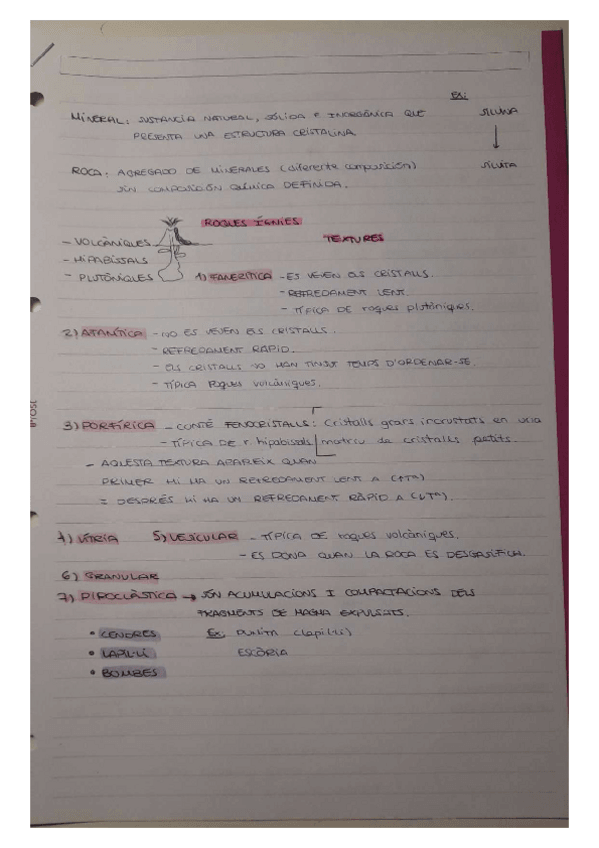 Ex:
MINERAL: SUSTANCIA NATURAL, SÓLIDA E INORGÁNICA QUE
PRESENTA UNA ESTRUCTURA CRISTALINA.
ROCA: AGREGADO DE MINERALES (diferente composición)
SIN COMPOSICIÓN QUÍMICA DEFINIDA.
ROQUES ÍGNIES
- VOLCÀNIQUES
- HIPABISSALS
- PLUTÒNIQUES
TEXTURES
1) FANERÍTICA - ES VEUEN ELS CRISTALLS.
- REFREDAMENT LENT.
- TÍPICA DE roques plutòniques.
2) AFANÍTICA - NO ES VEUEN ELS CRISTALLS.
- REFREDAMENT RÀPID.
- ELS CRISTALLS NO HAN TINGUT TEMPS D'ORDENAR-SE.
- TÍPICA Roques volcàniques.
3) PORFÍRICA - CONTÉ FENOCRISTALLS: Cristalls grans incrustats en una
matriu de cristalls petits.
- TÍPICA DE r. hipabissals
- AQUESTA TEXTURA APAREIX QUAN
PRIMER HI HA UN REFREDAMENT LENT A (↑Tª)
I DESPRÉS HI HA UN REFREDAMENT RÀPID A (↓Tª).
4) VÍTRIA 5) VESICULAR - TÍPICA DE roques volcàniques.
- ES DONA QUAN LA ROCA ES DESGASIFICA.
6) GRANULAR
7) PIROCLÀSTICA → SÓN ACUMULACIONS I COMPACTACIONS DELS
FRAGMENTS DE MAGMA EXPULSATS.
• CENDRES
• LAPIL·LI
• BOMBES
Ex: PUMITA (lapil·li)
ESCÒRIA